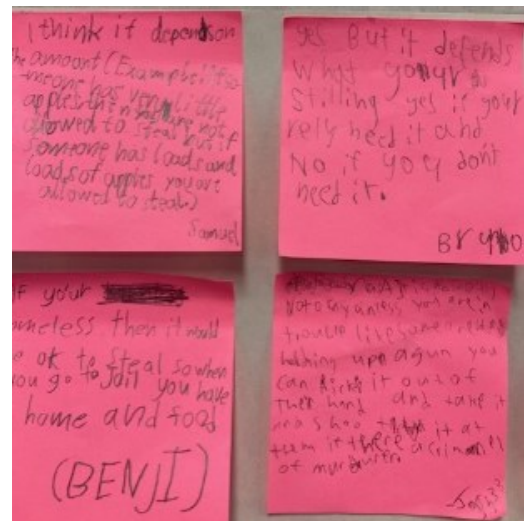 I think it depends on
the amount (Example: if so
meone has very little
apples then you are not
allowed to steal but if
someone has loads and
loads of apples you are
allowed to steal)
Samuel
yes But it depends
what your
Stilling yes if your
rely need it and
No if you don't
need it.
Bruno
if your
omeless then it would
e ok to steal so when
ou go to jail you have
home and food
(BENJI)
Not okay unless you are in
trouble like someone
holding up a gun you
can kick it out of
their hand and take it
and shoot it at
them if there a criminal
of